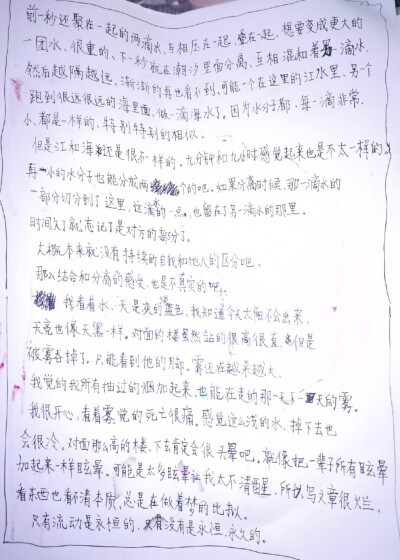 前一秒还聚在一起的两滴水,互相压在一起,叠在一起,想要变成更大的
一团水,很重的,下一秒就在潮汐里面分离,互相混和着另一滴水,
然后越隔越远,渐渐的再也看不到,可能一个在这里的江水里,另个
跑到很远很远的海里面,做一滴海水了,因为水分子都,每一滴非常
小,都是一样的,特别特别的相似。
但是江和海还是很不一样的,九分钟和九小时感觉起来也是不太一样的。
再小的水分子也能分成两个的吧。如果分离时候,那一滴水的
一部分切分到了这里,这滴水的一点,也留在了另一滴水的那里。
时间久了就忘记了是对方的部分了。
大概本来就没有持续的自我和他人的区分吧。
那么结合和分离的感受,也是不真实的吧。
我看着水,天是灰的蓝色,我知道今天太阳不会出来,
天亮也像天黑一样。对面的楼虽然站的很高很直,但是
被雾吞掉了。只能看到他的脚。雾还在越来越大。
我觉的我所有抽过的烟加起来,也能在走的那一天下一天的雾。
我很开心,看着雾觉的死亡很痛。感觉这么浅的水,掉下去也
会很冷。对面那么高的楼,下去肯定会很头晕吧。就像把一辈子所有眩晕
加起来一样眩晕。可能是太多眩晕让我太不清醒,所以写文章很火兰,
看东西也看不清本质,总是在做着梦的比拟。
只有流动是永恒的,只有没有是永恒,永久的。